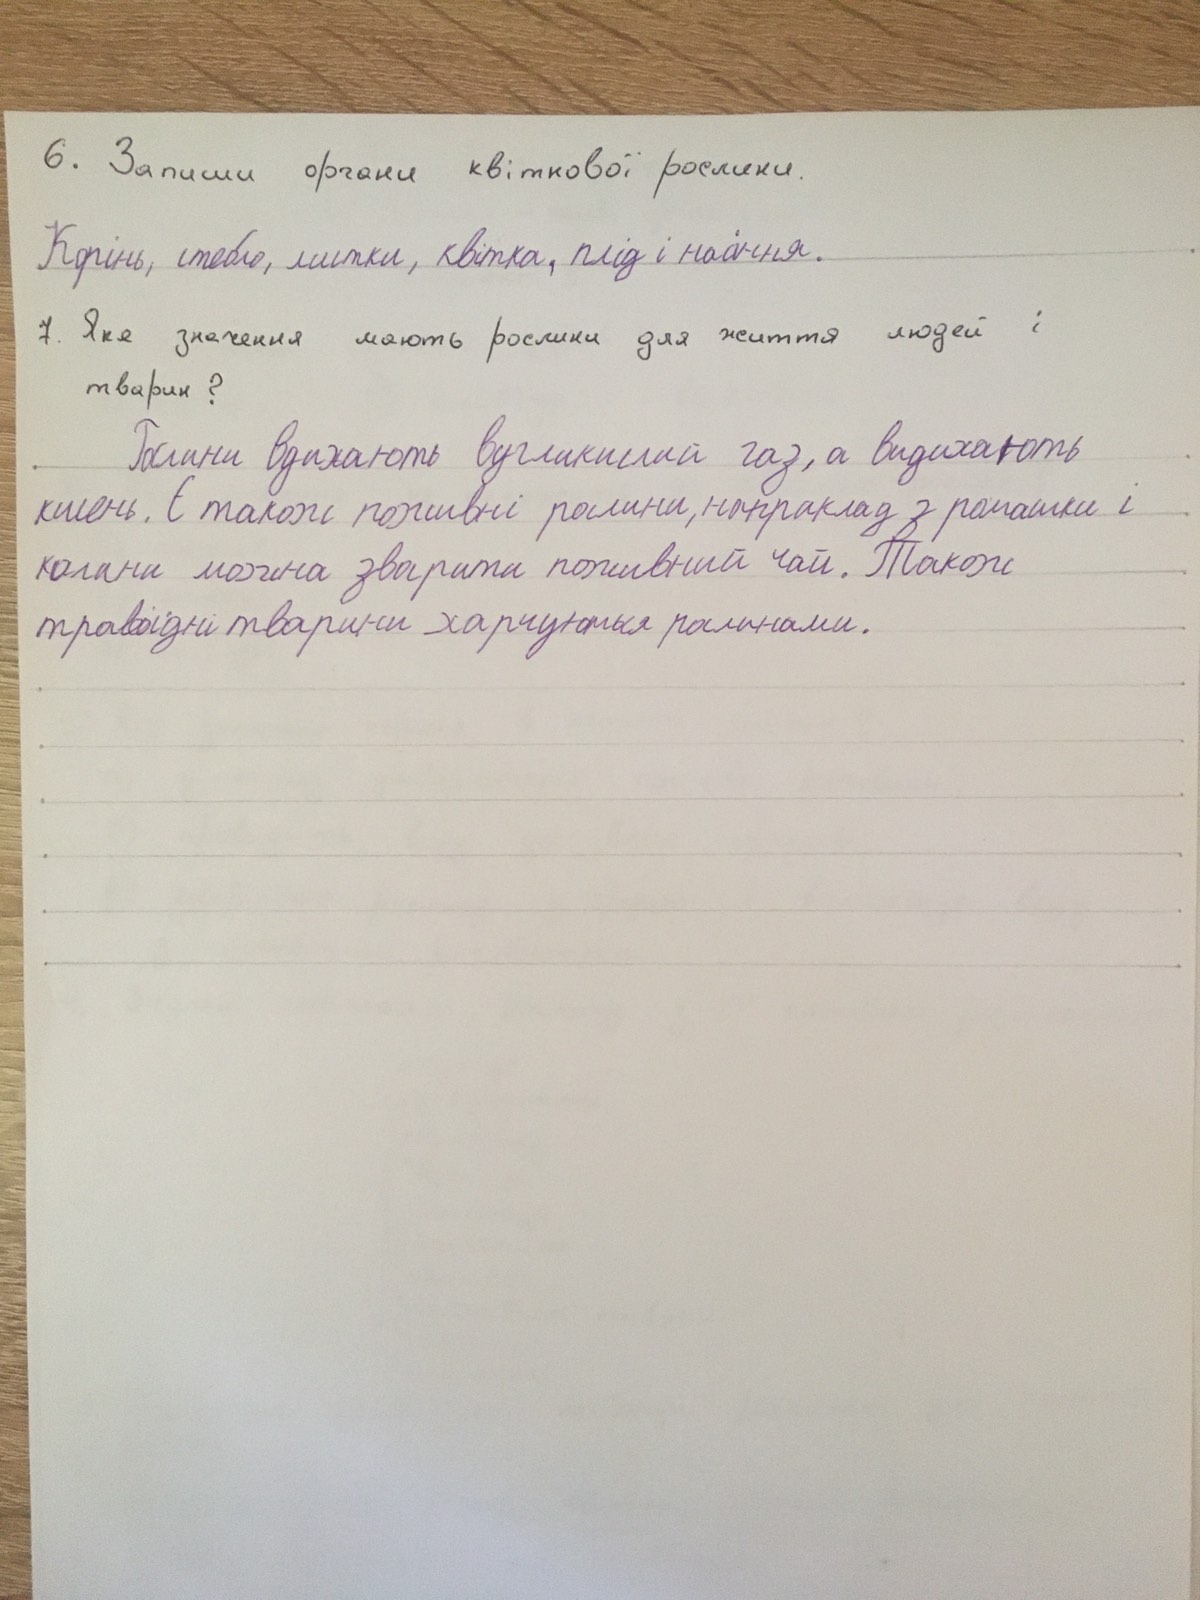 6. Запиши органи квіткової рослини.
Корінь, стебло, листки, квітка, плід і насіння.
7. Яке значення мають рослини для життя людей і
тварин?
Рослини вдихають вугликислий газ, а видихають
кисень. Є також поживні рослини, наприклад з ромашки і
калини можна зварити поживний чай. Також
травоїдні тварини харчуються рослинами.